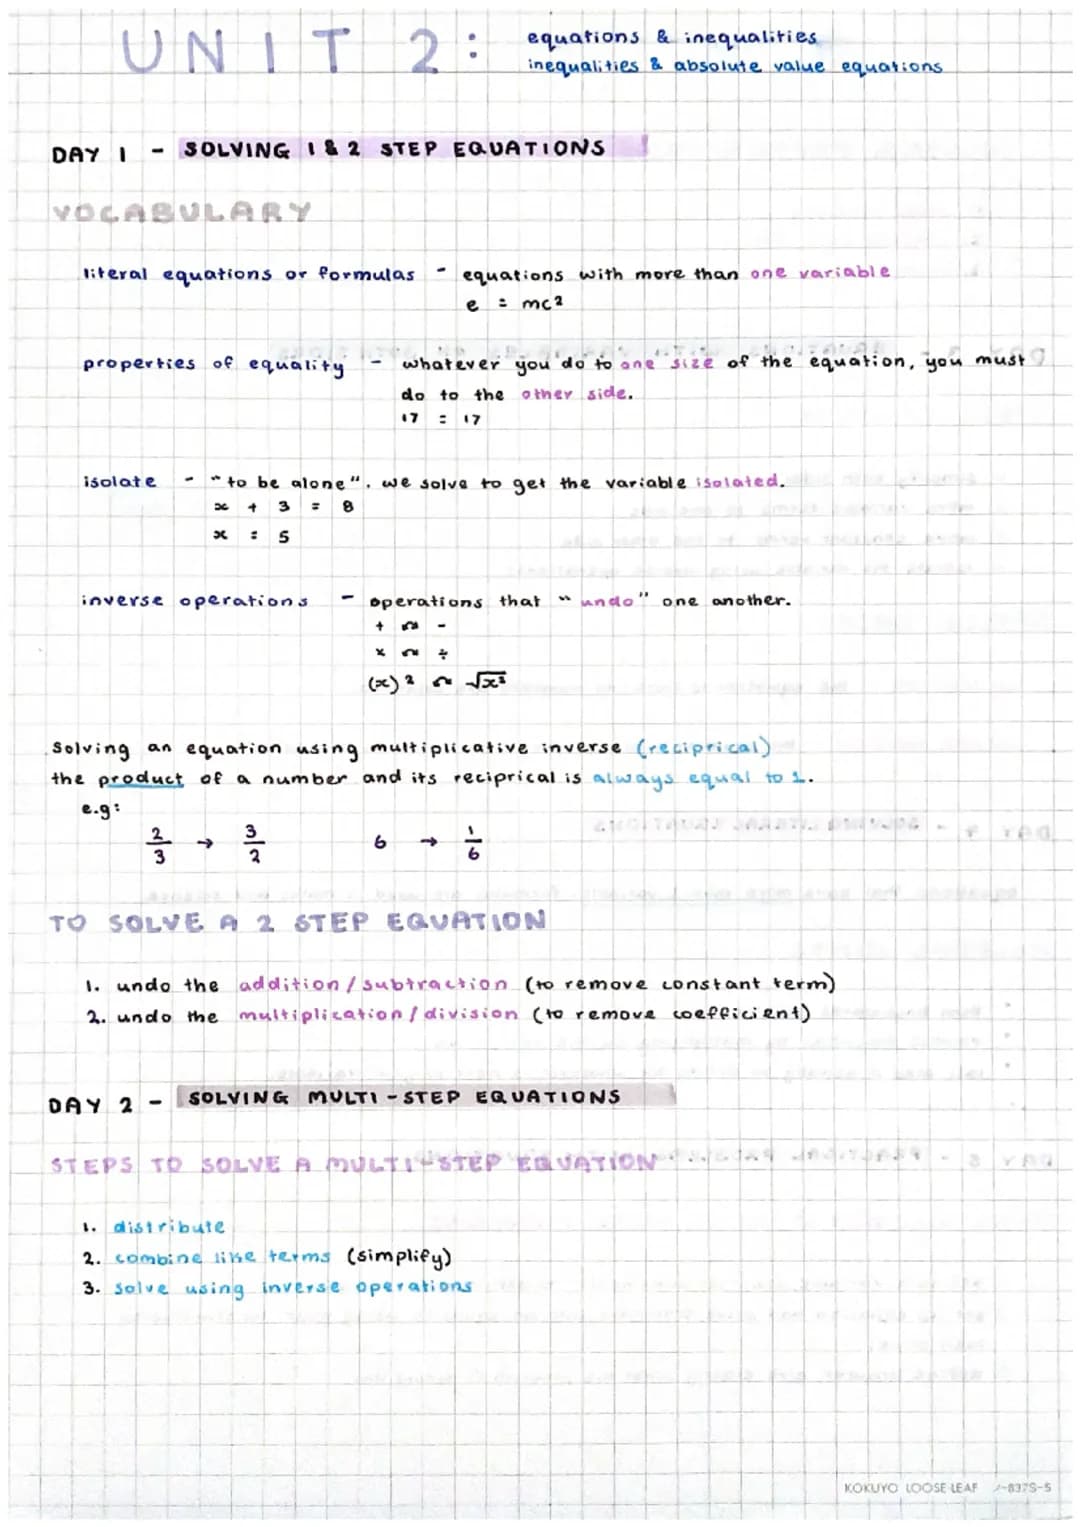 UNIT 2:
equations & inequalities
inequalities & absolute value equations
DAY 1 - SOLVING 1 & 2 STEP EQUATIONS
VOCABULARY
literal equations or formulas - equations with more than one variable
e = mc²
properties of equality - whatever you do to one size of the equation, you must
do to the other side.
17 = 17
isolate - "to be alone". we solve to get the variable isolated.
x + 3 = 8
x = 5
inverse operations - operations that "undo" one another.
+ -
× ÷
(x)² √x²
Solving an equation using multiplicative inverse (reciprical)
the product of a number and its reciprical is always equal to 1.
e.g:
2/3 → 3/2 6 → 1/6
TO SOLVE A 2 STEP EQUATION
1. undo the addition/subtraction (to remove constant term)
2. undo the multiplication/division (to remove coefficient)
DAY 2 - SOLVING MULTI-STEP EQUATIONS
STEPS TO SOLVE A MULTI-STEP EQUATION
1. distribute
2. combine like terms (simplify)
3. solve using inverse operations
KOKUYO LOOSE-LEAF